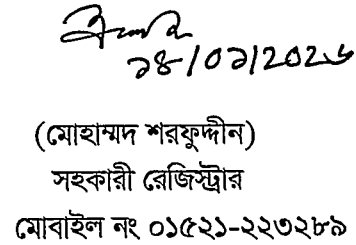 ১৪/০১/2026
(মোহাম্মদ শরফুদ্দীন)
সহকারী রেজিস্ট্রার
মোবাইল নং ০১৫২১-২২৩২৮৯